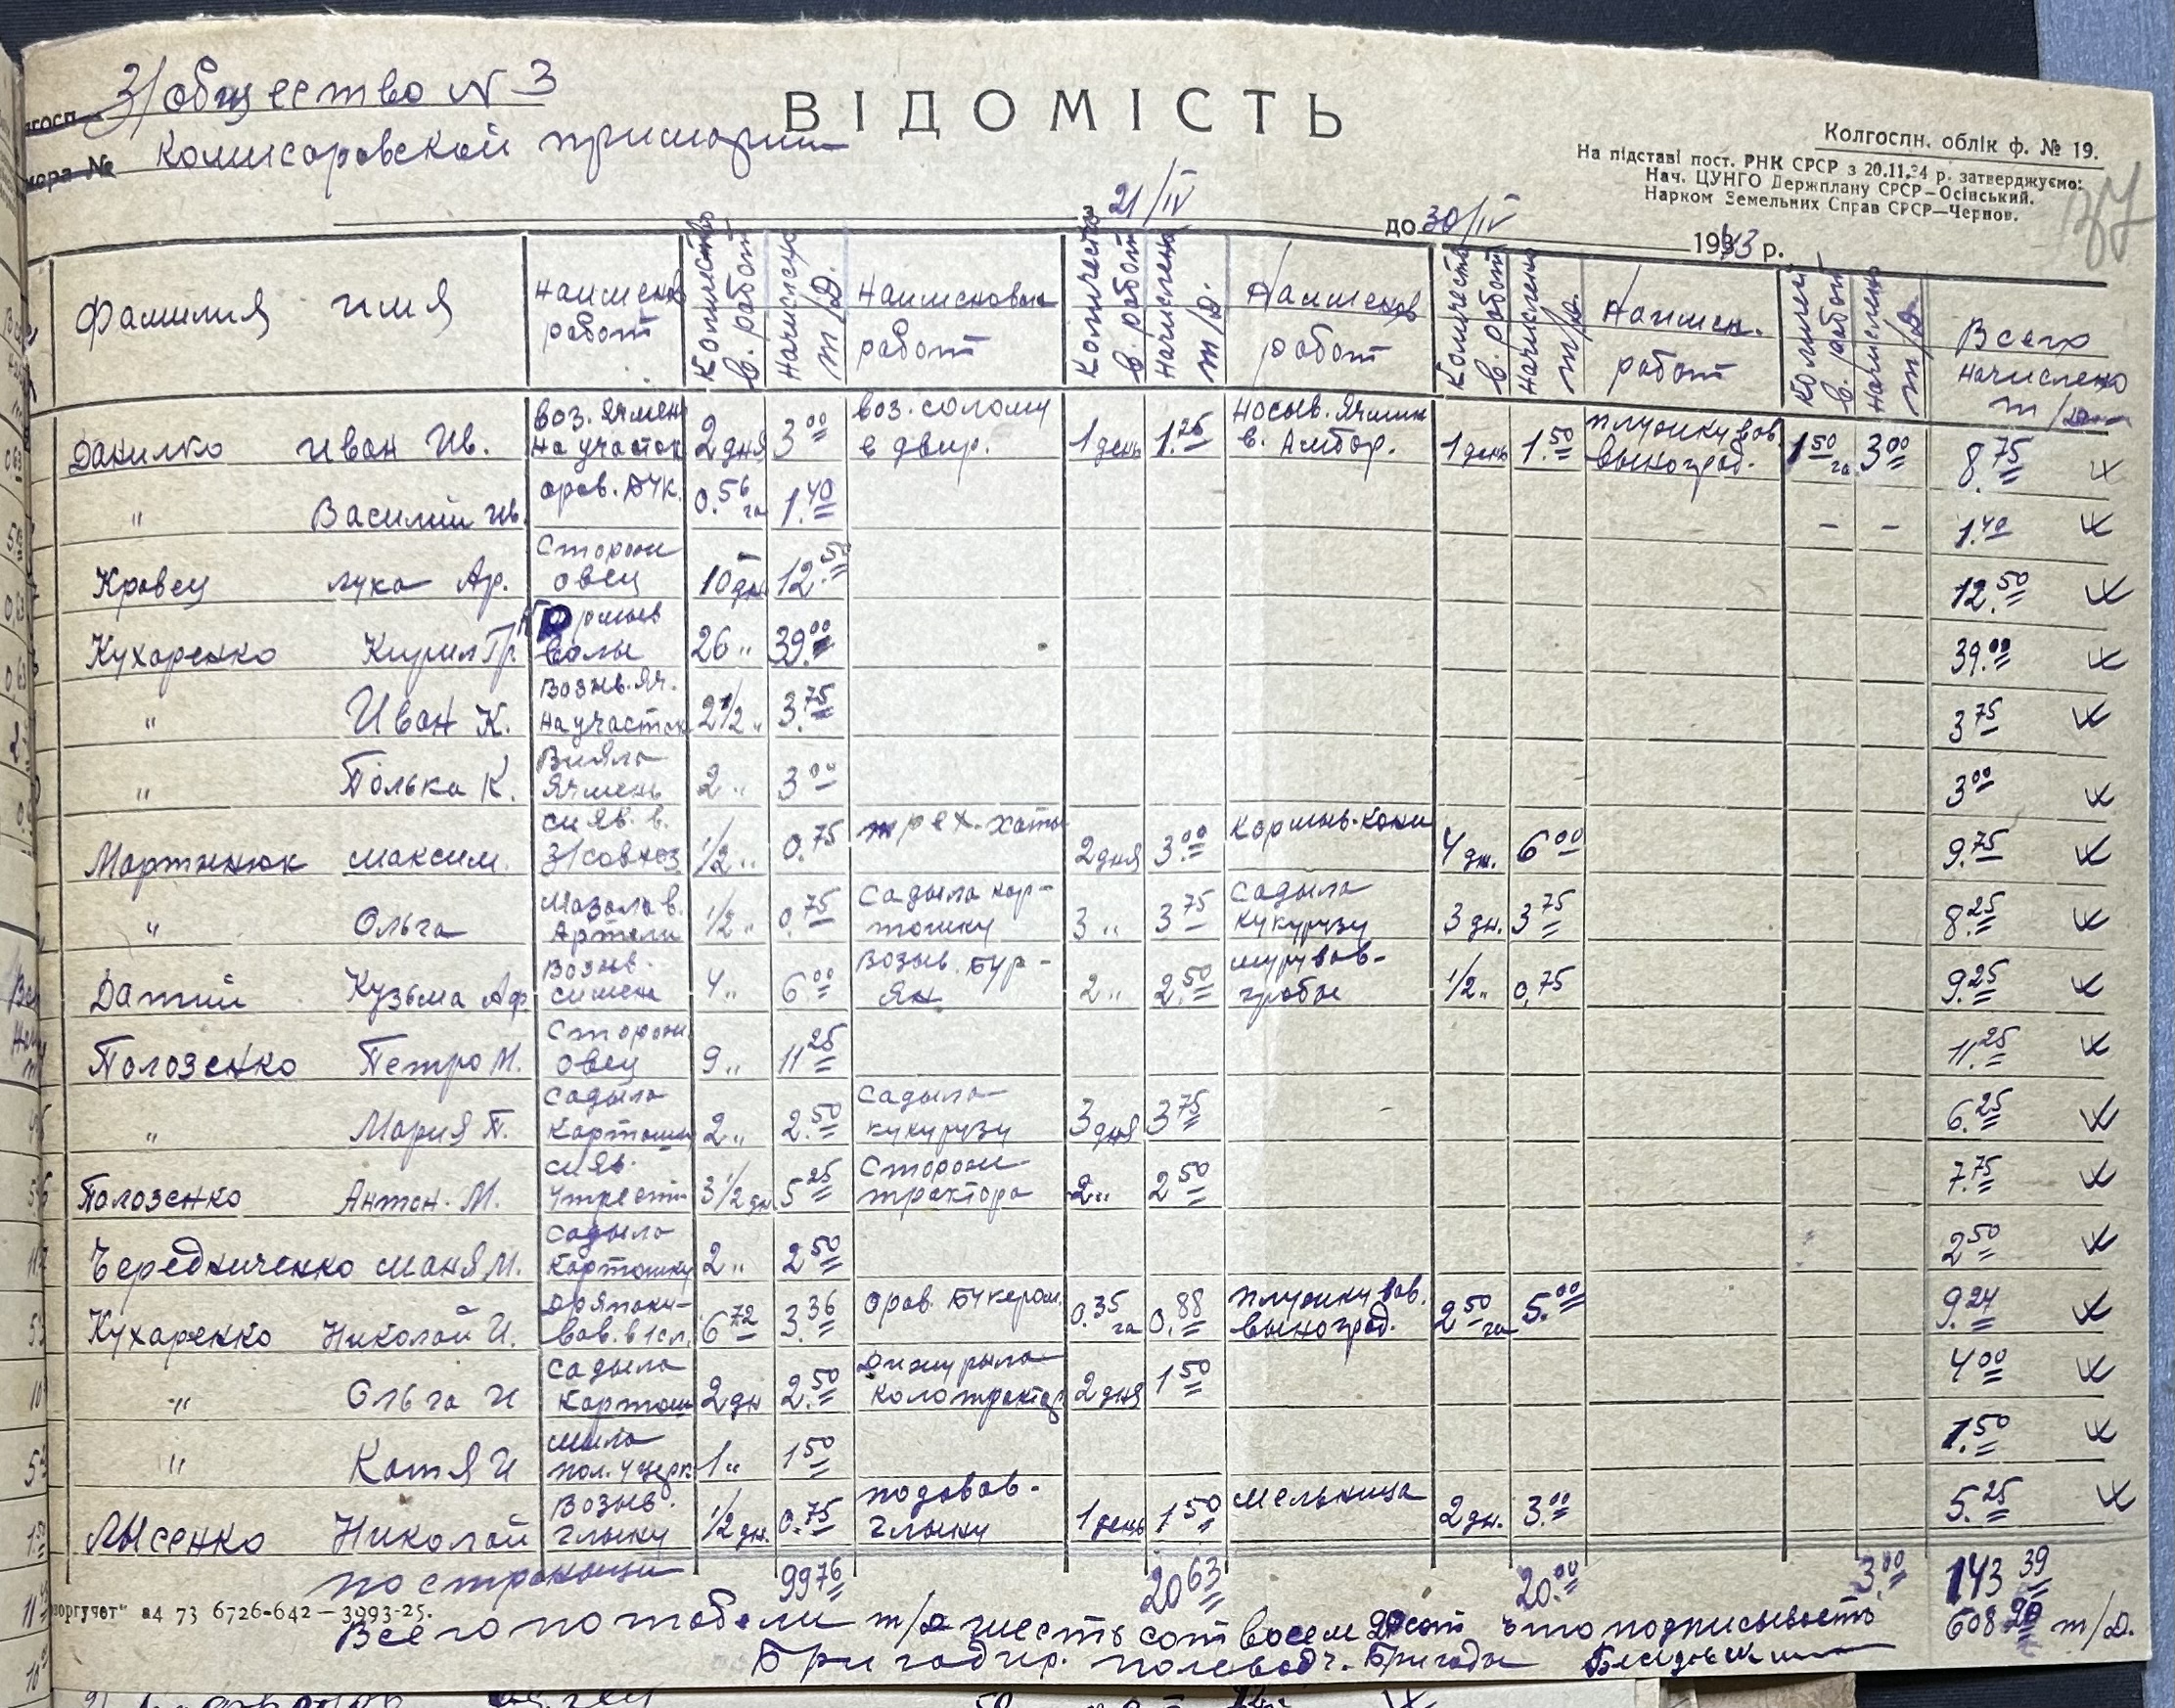 З/общество N 3
ВІДОМІСТЬ
Комисаровской примории
Колгоспн. облік ф. № 19.
На підставі пост. РНК СРСР з 20.11.34 р. затверджуємо:
Нач. ЦУНГО Держплану СРСР—Осінський.
Нарком Земельних Справ СРСР—Чернов.
37
21/IV до 30/IV 1943 р.
Фамилия имя Наименов работ Количество в. работ Начислено т/д. Наименован работ Количество в. работ Начислено т/д. Наименов работ Количеств в. работ Начислено т/д. Наимен. работ Количес в. работ Начислено т/д. Всего начислено т/дн
Данилко Иван Ив. воз. Ячмен на участок 2 дня 3 00 воз. солому в двир. 1 день 1.25 носыв. Ячмин в. Амбар. 1 день 1.50 плужкував. выноград. 1 50 га 3 00 8.75
" Василий Ив. орав. БЧК. 0.56 га 1.40 - - 1.40
Кравец Лука Ар. Сторож овец 10 дн 12.50 12.50
Кухаренко Кирил Гр. Кормыв волы 26 " 39.00 39.00
" Иван К. Возыв. яч. на участок 2 1/2 " 3.75 3 75
" Полька К. Вияла Ячмень 2 " 3 00 3 00
Мартинюк Максим. сияв. в. З/совхоз 1/2 " 0.75 трех. хаты 2 дня 3.00 Кормыв. кони 4 дн. 6 00 9.75
" Ольга Мазала в. Артели 1/2 " 0.75 Садыла кар- тошку 3 " 3 75 Садыла кукурузу 3 дн. 3 75 8.25
Датий Кузьма Аф. Возыв. симена 4 " 6.00 Возыв. Бур- ян 2 " 2.50 шурував- гробы 1/2 " 0,75 9.25
Полозенко Петро М. Сторож. овец 9 " 11 25 11.25
" Мария П. Садыла Картошку 2 " 2.50 Садыла кукурузу 3 дня 3 75 6.25
Полозенко Антон. М. сияв. 3 1/2 дн. 5 25 Сторож трактора 2 " 2 50 7.75
Чередниченко Маня М. Садыла Картошку 2 " 2 50 2 50
Кухаренко Николай И. 6 72 3.36 Орав. Букером. 0.35 га 0.88 плужкував. выноград. 2 50 га 5.00 9.24
" Ольга И Садыла Картош 2 дн 2.50 Дижурыла коло трактор 2 дня 1 50 4 00
" Катя И Мыла пол. у церк. 1 " 1 50 1.50
Лысенко Николай Возыв. глыну 1/2 дн. 0.75 подавав. глыну 1 день 1 50 мельница 2 дн. 3.00 5.25
по страници 99 76 20 63 20.00 3.00 143 39
оргучет" з4 73 6726-642—3993-25.
Всего по табели т/д шесть сот восем что подписываеть 608 т/д.
Бригадир. полеводч. Бригады